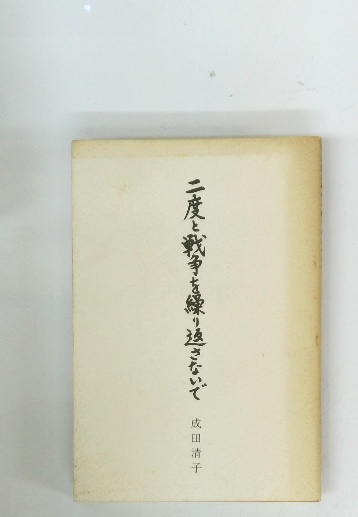 二度と戦争を繰り返さないで
成田清子